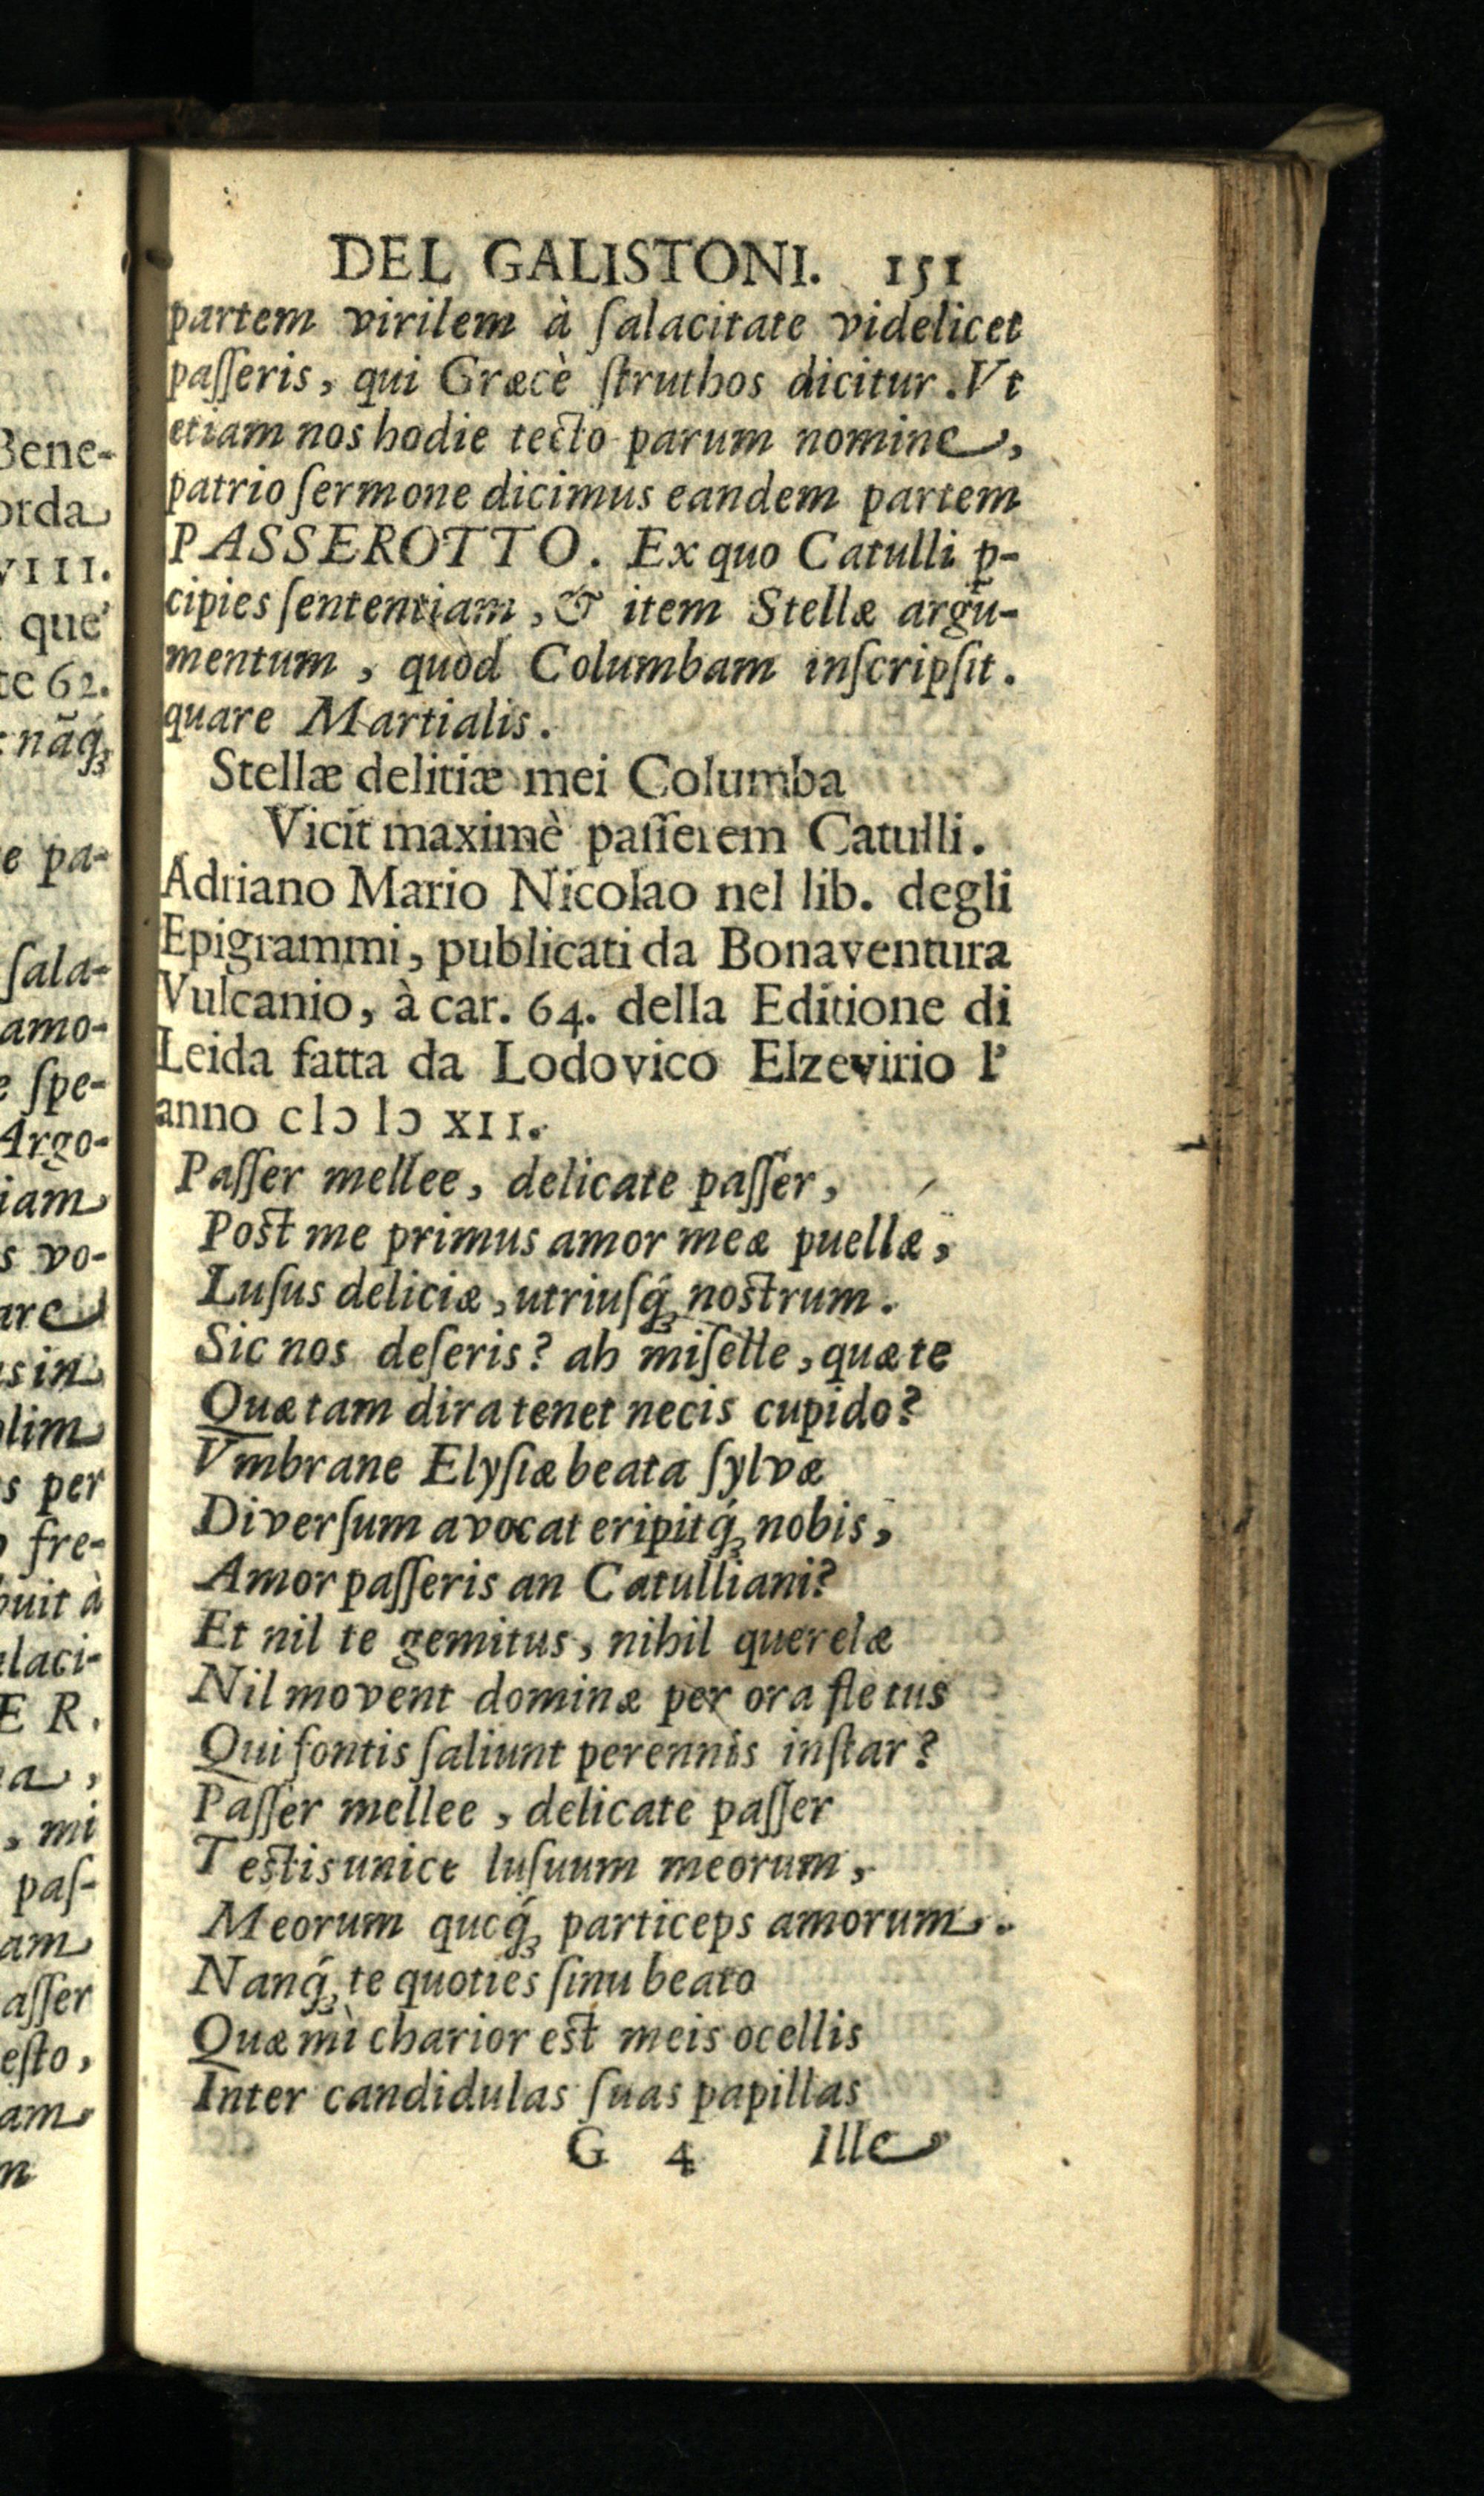 DEL GALISTONI. 151
partem virilem à ſalacitate videlicet
paſſeris, qui Græcè ſtruthos dicitur. Vt
etiam nos hodie tecto parum nomine,
patrio ſermone dicimus eandem partem
PASSEROTTO. Ex quo Catulli p-
cipies ſententiam, & item Stellæ argu-
mentum, quòd Columbam inſcripſit.
quare Martialis.
Stellæ delitiæ mei Columba
Vicit maximè paſſerem Catulli.
Adriano Mario Nicolao nel lib. degli
Epigrammi, publicati da Bonaventura
Vulcanio, à car. 64. della Editione di
Leida fatta da Lodovico Elzevirio l'
anno cIↄ Iↄ XII.
Paſſer mellee, delicate paſſer,
Poſt me primus amor meæ puellæ,
Luſus deliciæ, utriuſq́; noſtrum.
Sic nos deſeris? ah miſelle, quæ te
Quæ tam dira tenet necis cupido?
Vmbrane Elyſiæ beata ſylvæ
Diverſum avocat eripitq́; nobis,
Amor paſſeris an Catulliani?
Et nil te gemitus, nihil querelæ
Nil movent dominæ per ora fletus
Qui fontis ſaliunt perennis inſtar?
Paſſer mellee, delicate paſſer
Teſtis unice luſuum meorum,
Meorum qucq́; particeps amorum.
Nanq́; te quoties ſinu beato
Quæ mì charior eſt meis ocellis
Inter candidulas ſuas papillas
G 4 Ille
Bene-
orda
VIII.
que
te 62.
nãq́;
e pa-
ſala-
amo-
e ſpe-
Argo-
iam
s vo-
are
s in
olim
s per
fre-
buit à
alaci-
E R.
a,
, mi
paſ-
am
aſſer
eſto,
am